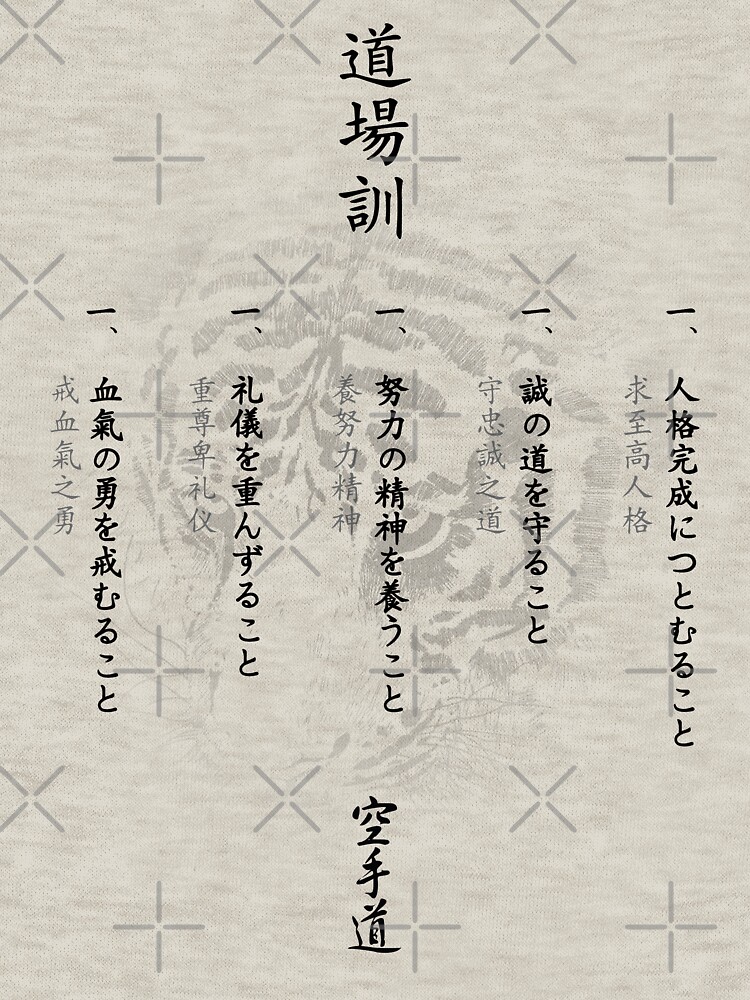 道場訓
一、人格完成につとむること
求至高人格
一、誠の道を守ること
守忠誠之道
一、努力の精神を養うこと
養努力精神
一、礼儀を重んずること
重尊卑礼仪
一、血氣の勇を戒むること
戒血氣之勇
空手道